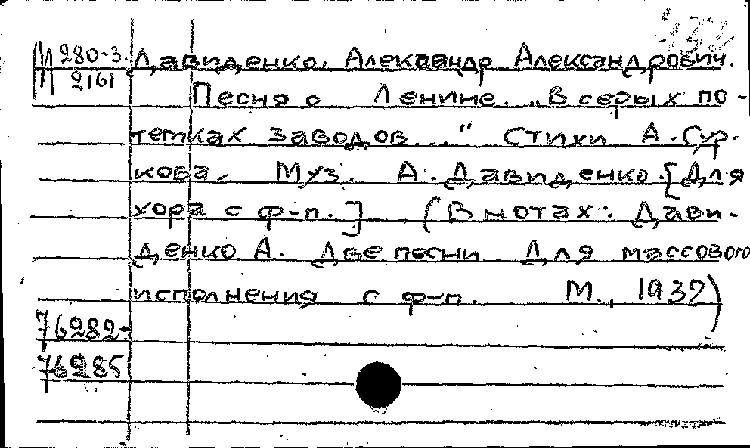 М 280-3 Давиденко, Александр Александрович.
2161
Песня о Ленине. „В серых по-
темках заводов..." Стихи А. Сур-
кова. Муз. А. Давиденко. [Для
хора с ф-п.] (В нотах: Дави-
денко А. Две песни для массового
исполнения с ф-п. М., 1932)
76282-
76285